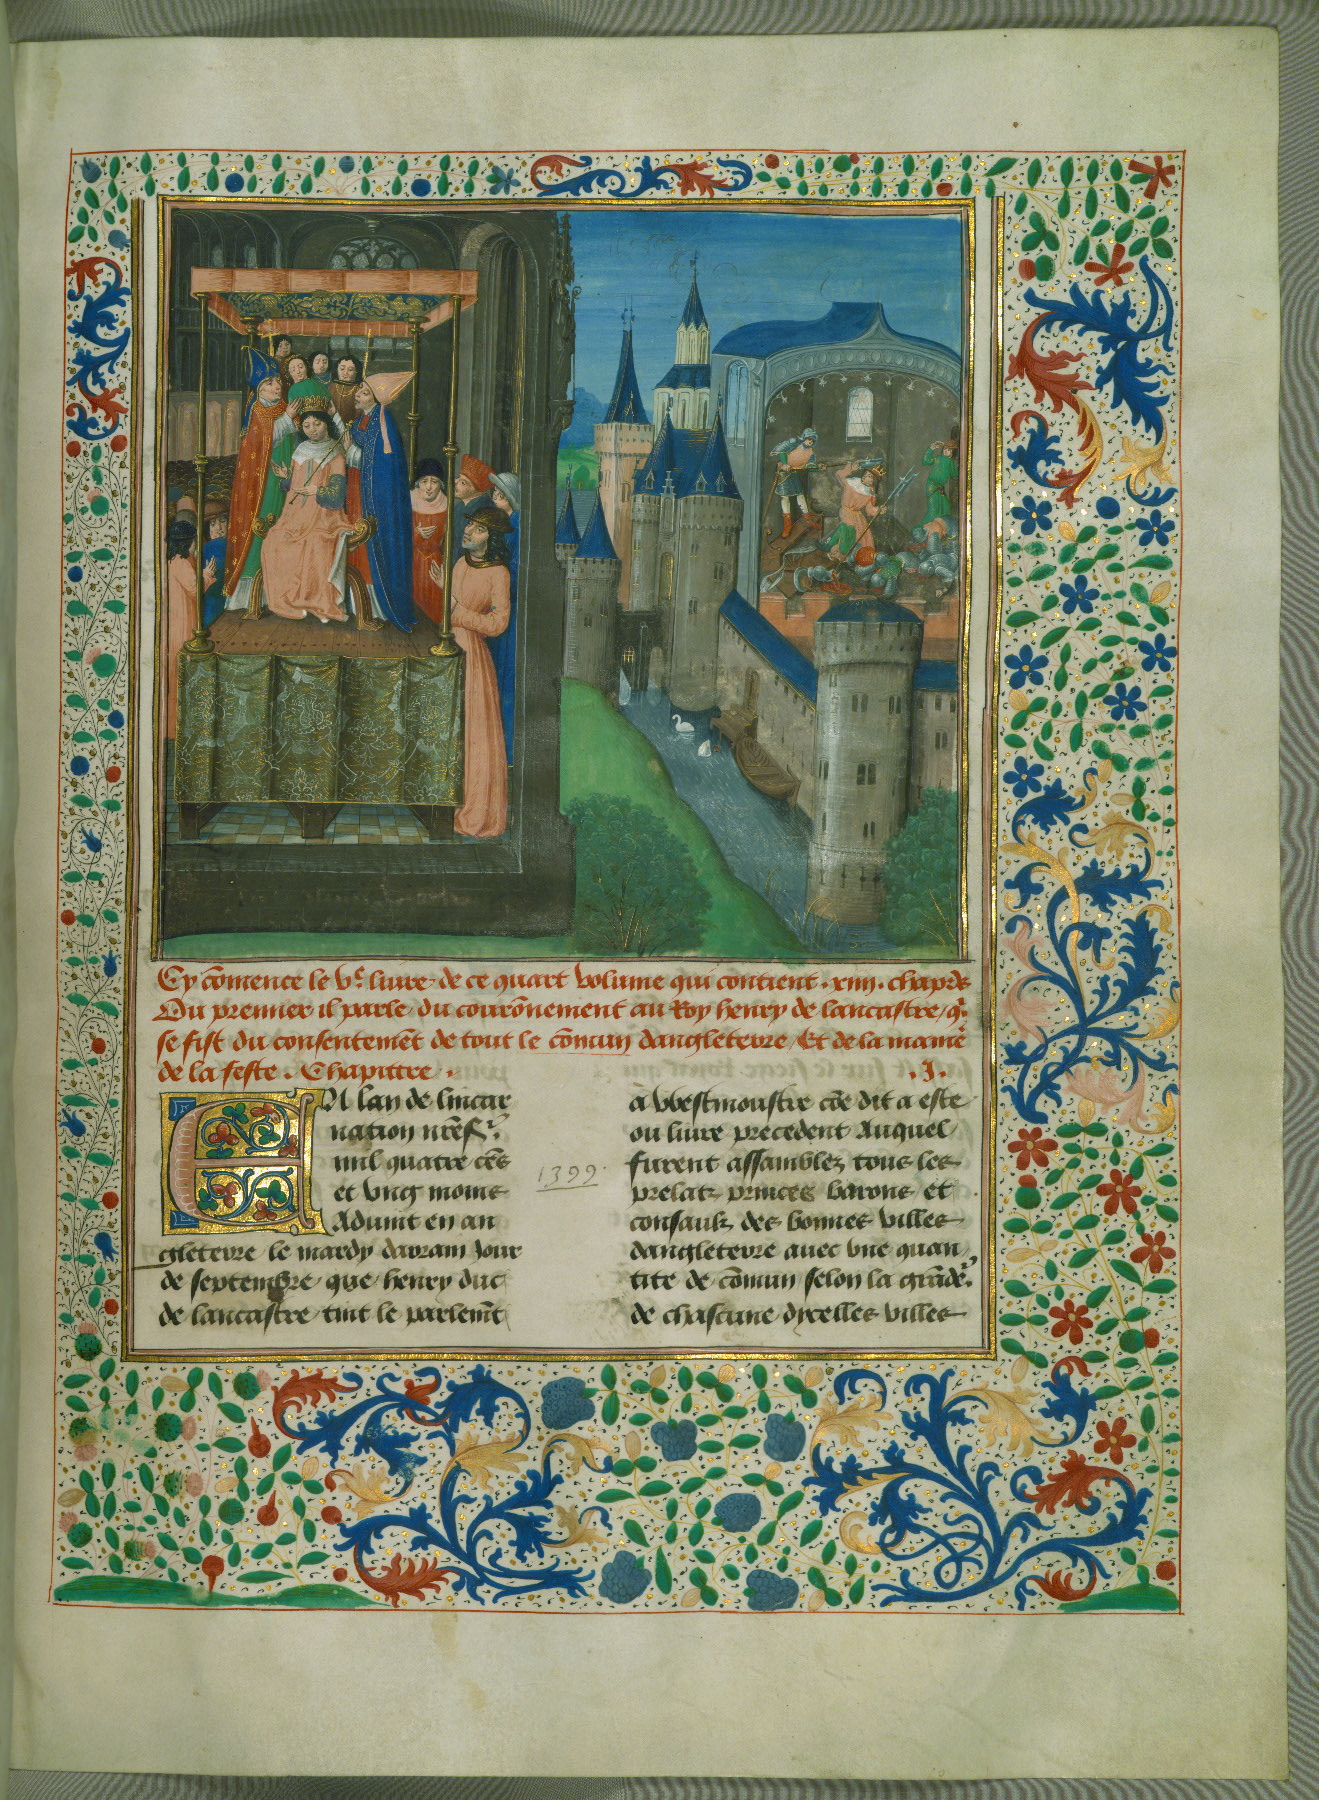 Cy cōmence le vᵉ livre de ce quart volume qui contient .xiiii. chap̄rs
Du premier il parle du courōnement au Roy henry de lancastre q̄
se fist du consentemēt de tout le cōmun dangleterre Et de la manīe
de la feste . Chapittre . .I.
EN lan de lincar
nation nr̄e sʳ.
mil quatre cēs
et ung moins
Aduint en an
gleterre le mardy darrain jour
de septembre que henry duc
de lancastre tint le parlemēt
1399.
a vvestmoustre cōe dit a este
ou livre precedent Auquel
furent assamblez tous les
prelatz princes barons et
consaulz des bonnes villes
dangleterre avec une quan
tite de cōmun selon la grādeʳ.
de chascune dycelles villes